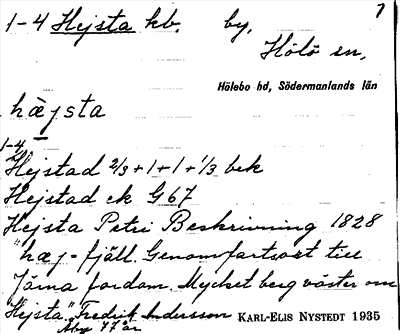 1-4 Hejsta kb. by. 1
Hölö sn.
Hölebo hd, Södermanlands län
hæjsta
1-4
Hejstad 2/3+1+1+1/3 bek
Hejstad ek G 67
Hejsta Petri Beskrivning 1828
"hæj = fjäll. Genomfartsort till
Järna fordom. Mycket berg väster om
Hejsta." Fredrik Andersson KARL-ELIS NYSTEDT 1935
Åby 77 år